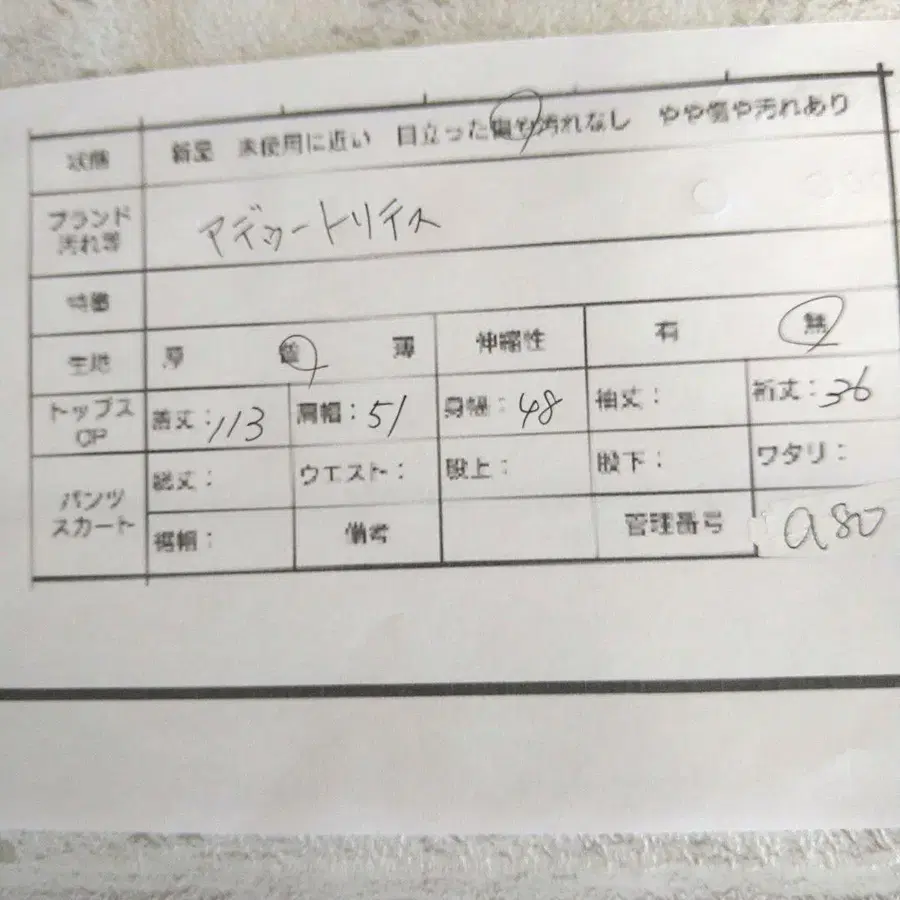 状態 新品 未使用に近い 目立った傷や汚れなし やや傷や汚れあり
ブランド
汚れ等 アデュートリテス
特徴
生地 厚 普 薄 伸縮性 有 無
トップス
OP 着丈:113 肩幅:51 身幅:48 袖丈: 裄丈:36
パンツ
スカート 総丈: ウエスト: 股上: 股下: ワタリ:
裾幅: 備考 管理番号 a80